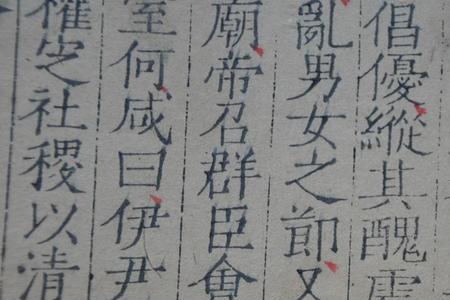 倡優縱其醜
亂男女之節又
廟帝召群臣會
室何咸曰伊尹
權定社稷以清